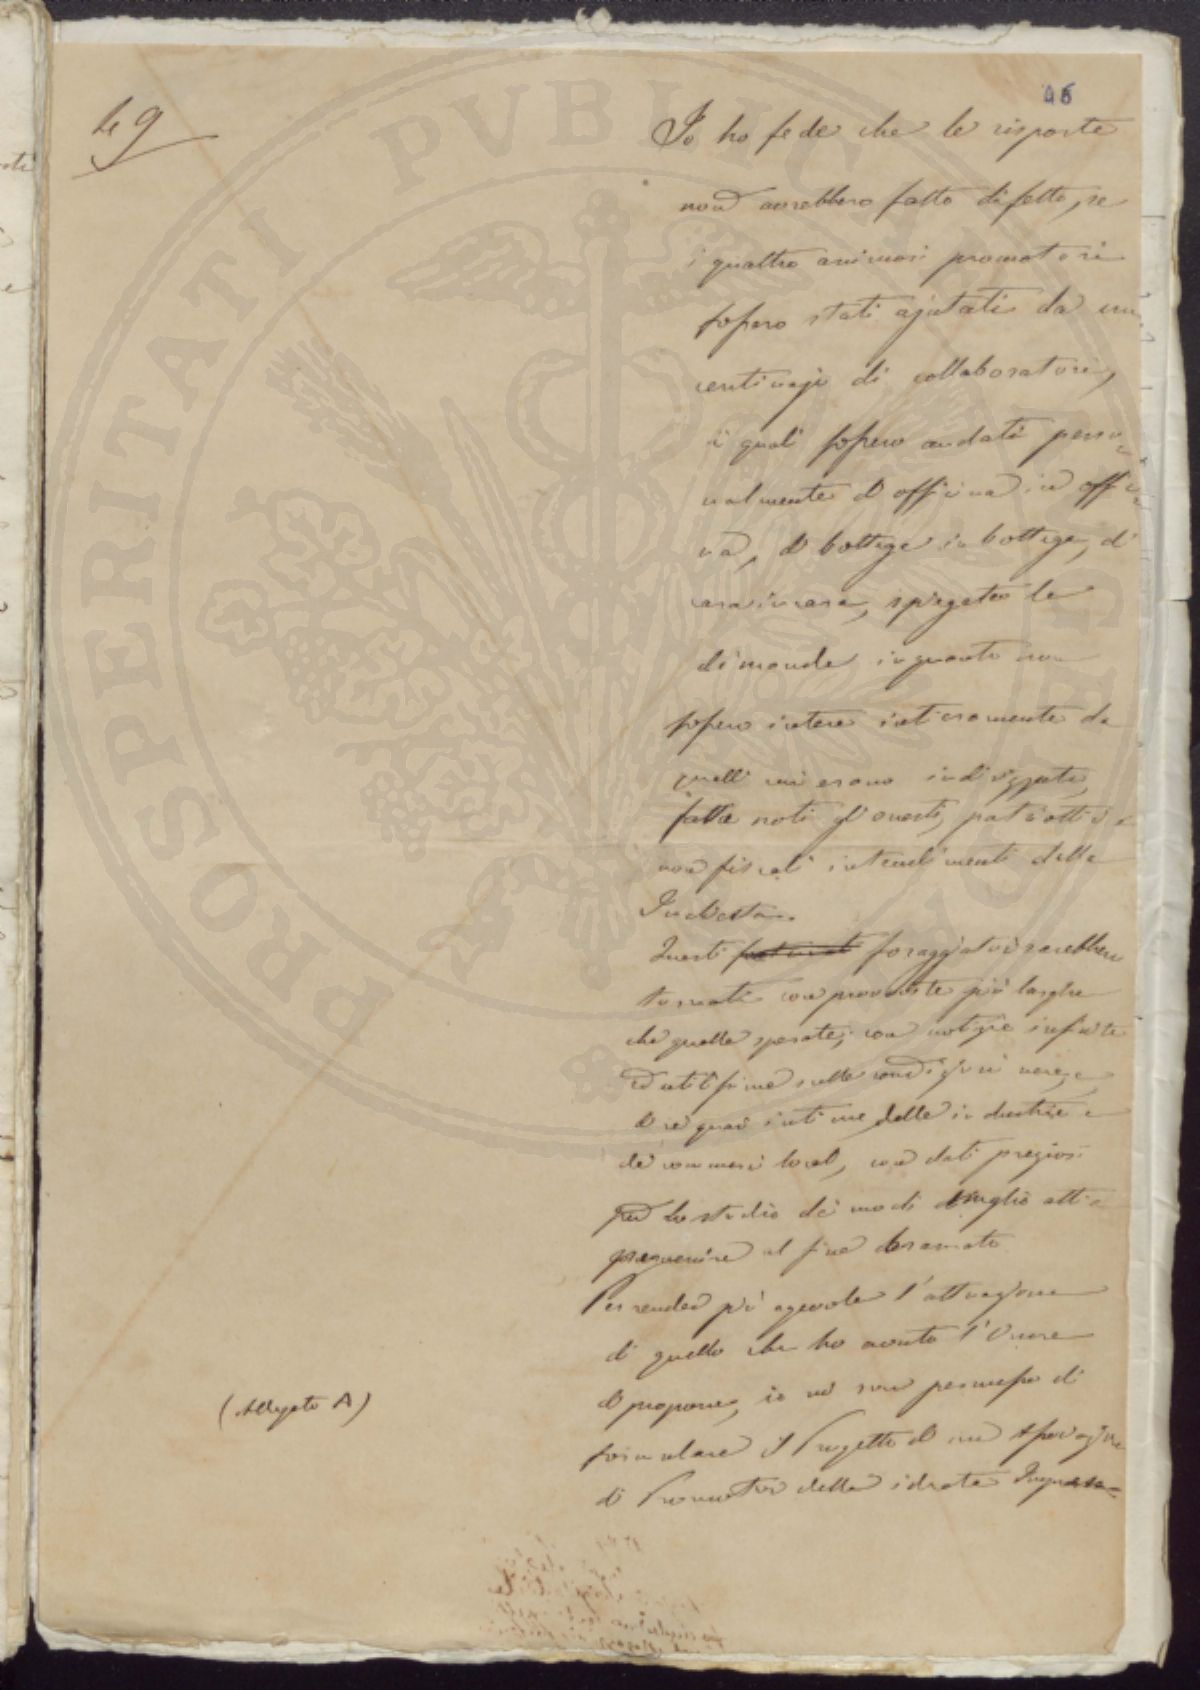 49
46
Io ho fede che le risposte
non avrebbero fatto difetto, se
i quattro animosi promotori
fossero stati ajutati da un
centinajo di collaboratori,
i quali fossero andati perso=
nalmente d'officina in offici=
na, di bottega in bottega, di
casa in casa, spiegato le
dimande inquanto non
fossero intese interamente da
quelli cui erano indirizzate,
fatte noti gl'onesti, patriottici e
non fiscali intendimenti della
Inchiesta.
Questi foraggiatori sarebbero
tornati con provviste più larghe
che quelle sperate; con notizie infinite
ed utilissime sulle condizioni vere, e
direi quasi intime delle industrie e
de' commerci locali, con dati preziosi
per lo studio dei modi meglio atti a
pervenire al fine desiderato.
Per render più agevole l'attuazione
di quello che ho avuto l'onore
di proporre, io mi son permesso di
(Allegato A)
formulare il Progetto di una Associazione
di Promotori della ideata
PROSPERITATI PVBLICAE